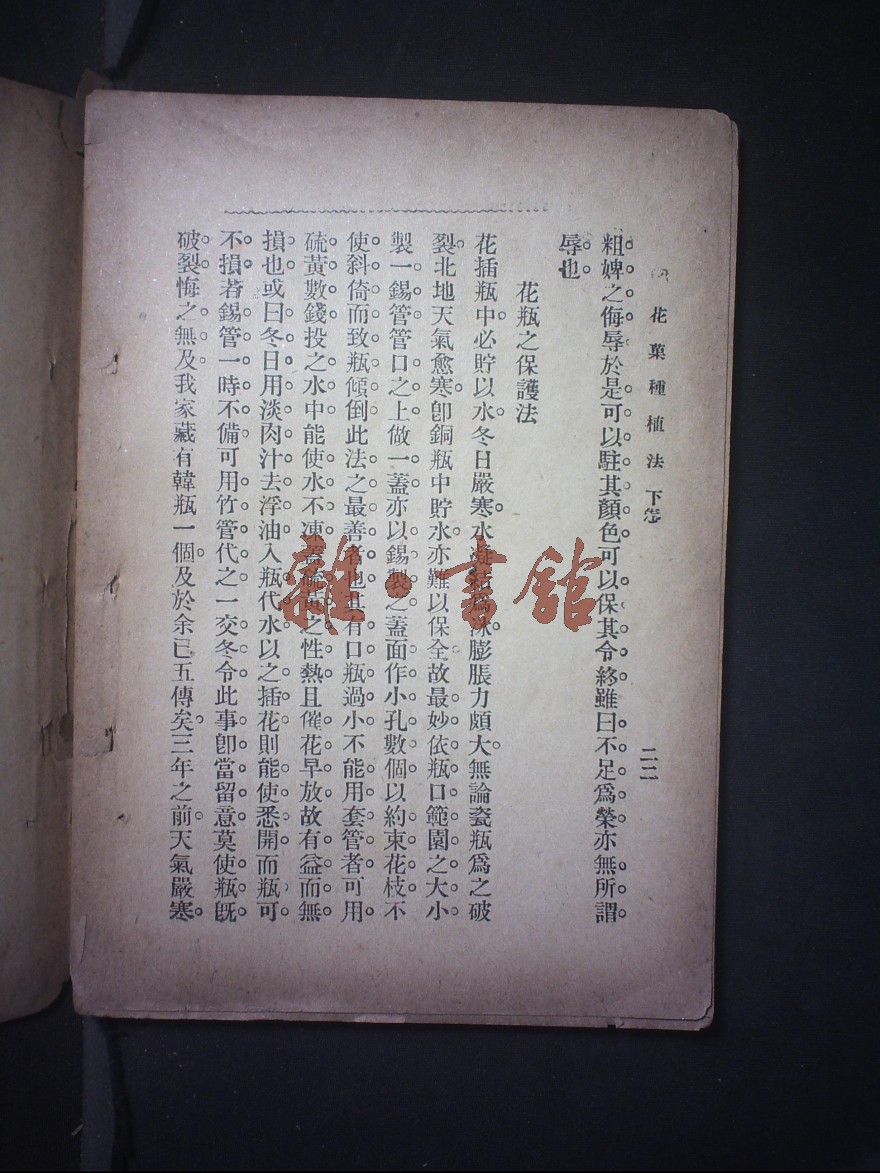 花菓種植法 下卷 二二
粗婢之侮辱於是可以駐其顏色可以保其令終雖曰不足爲榮亦無所謂
辱也
花瓶之保護法
花插瓶中必貯以水冬日嚴寒水凝結爲冰膨脹力頗大無論瓷瓶爲之破
裂北地天氣愈寒卽銅瓶中貯水亦難以保全故最妙依瓶口範園之大小
製一錫管管口之上做一蓋亦以錫製之蓋面作小孔數個以約束花枝不
使斜倚而致瓶傾倒此法之最善者也其有口瓶過小不能用套管者可用
硫黃數錢投之水中能使水不凍蓋硫黃之性熱且催花早放故有益而無
損也或曰冬日用淡肉汁去浮油入瓶代水以之插花則能使悉開而瓶可
不損若錫管一時不備可用竹管代之一交冬令此事卽當留意莫使瓶旣
破裂悔之無及我家藏有韓瓶一個及於余已五傳矣三年之前天氣嚴寒
雜·書館